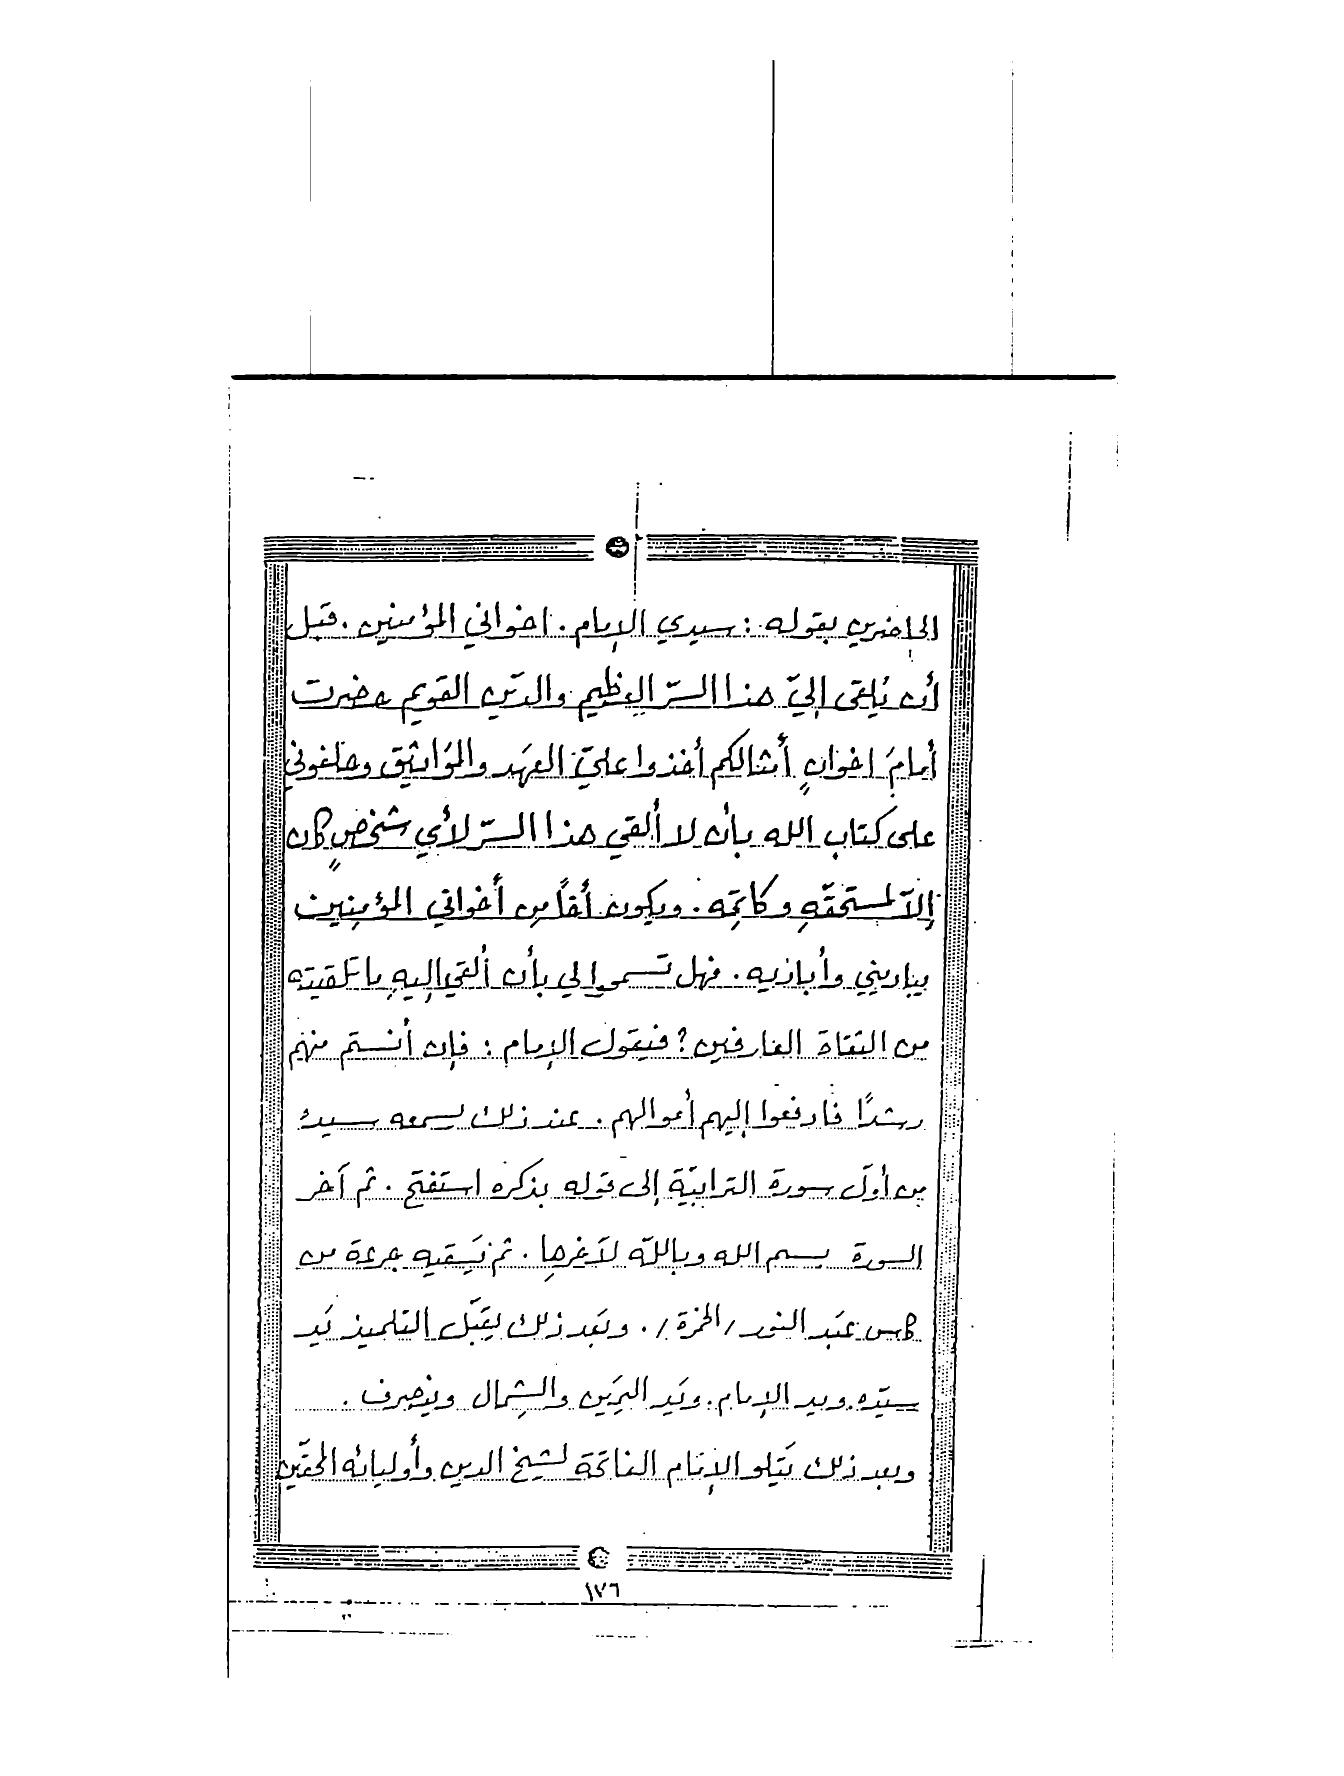 الحاضرين بقوله : سيدي الإمام . اخواني المؤمنين . قبل
أن يُلقى إليّ هذا السرّ العظيم والدّين القويم حضرت
أمامَ اخوانٍ أمثالكم أخذوا عليّ العهَد والموَاثيق وحلفوني
على كتاب الله بأن لا ألقي هذا السرّ لأي شخصٍ كان
إلاّ لمستحقّهِ وكاتِمه . ويكون أخاً مِن أخواني المؤمِنين
يباريني وأباريه . فهل تسمحوا لي بأن ألقي إليهِ ما تلقيته
من الثقاة العارفين ؟ فيَقول الإمام : فإن أنستم منهم
رشداً فادفعوا إليهم أموالهم . عند ذلك يسمعه سيدهُ
من أوّل سورة الترابيّة إلى قوله بذكره استفتح . ثم آخر
السورة بسم الله وباللّه لآخرها . ثم يَسقيه جرعة من
كاس عبَد النور /الخمرة/ . وبَعد ذلك يقبّل التلميذ يَد
سيّده ويد الإمام . ويَد اليمَين والشِمال وينصرف .
وبعد ذلك يَتلو الإمَام الفاتحة لشيخ الدين وأوليائه الحقّين
١٧٦